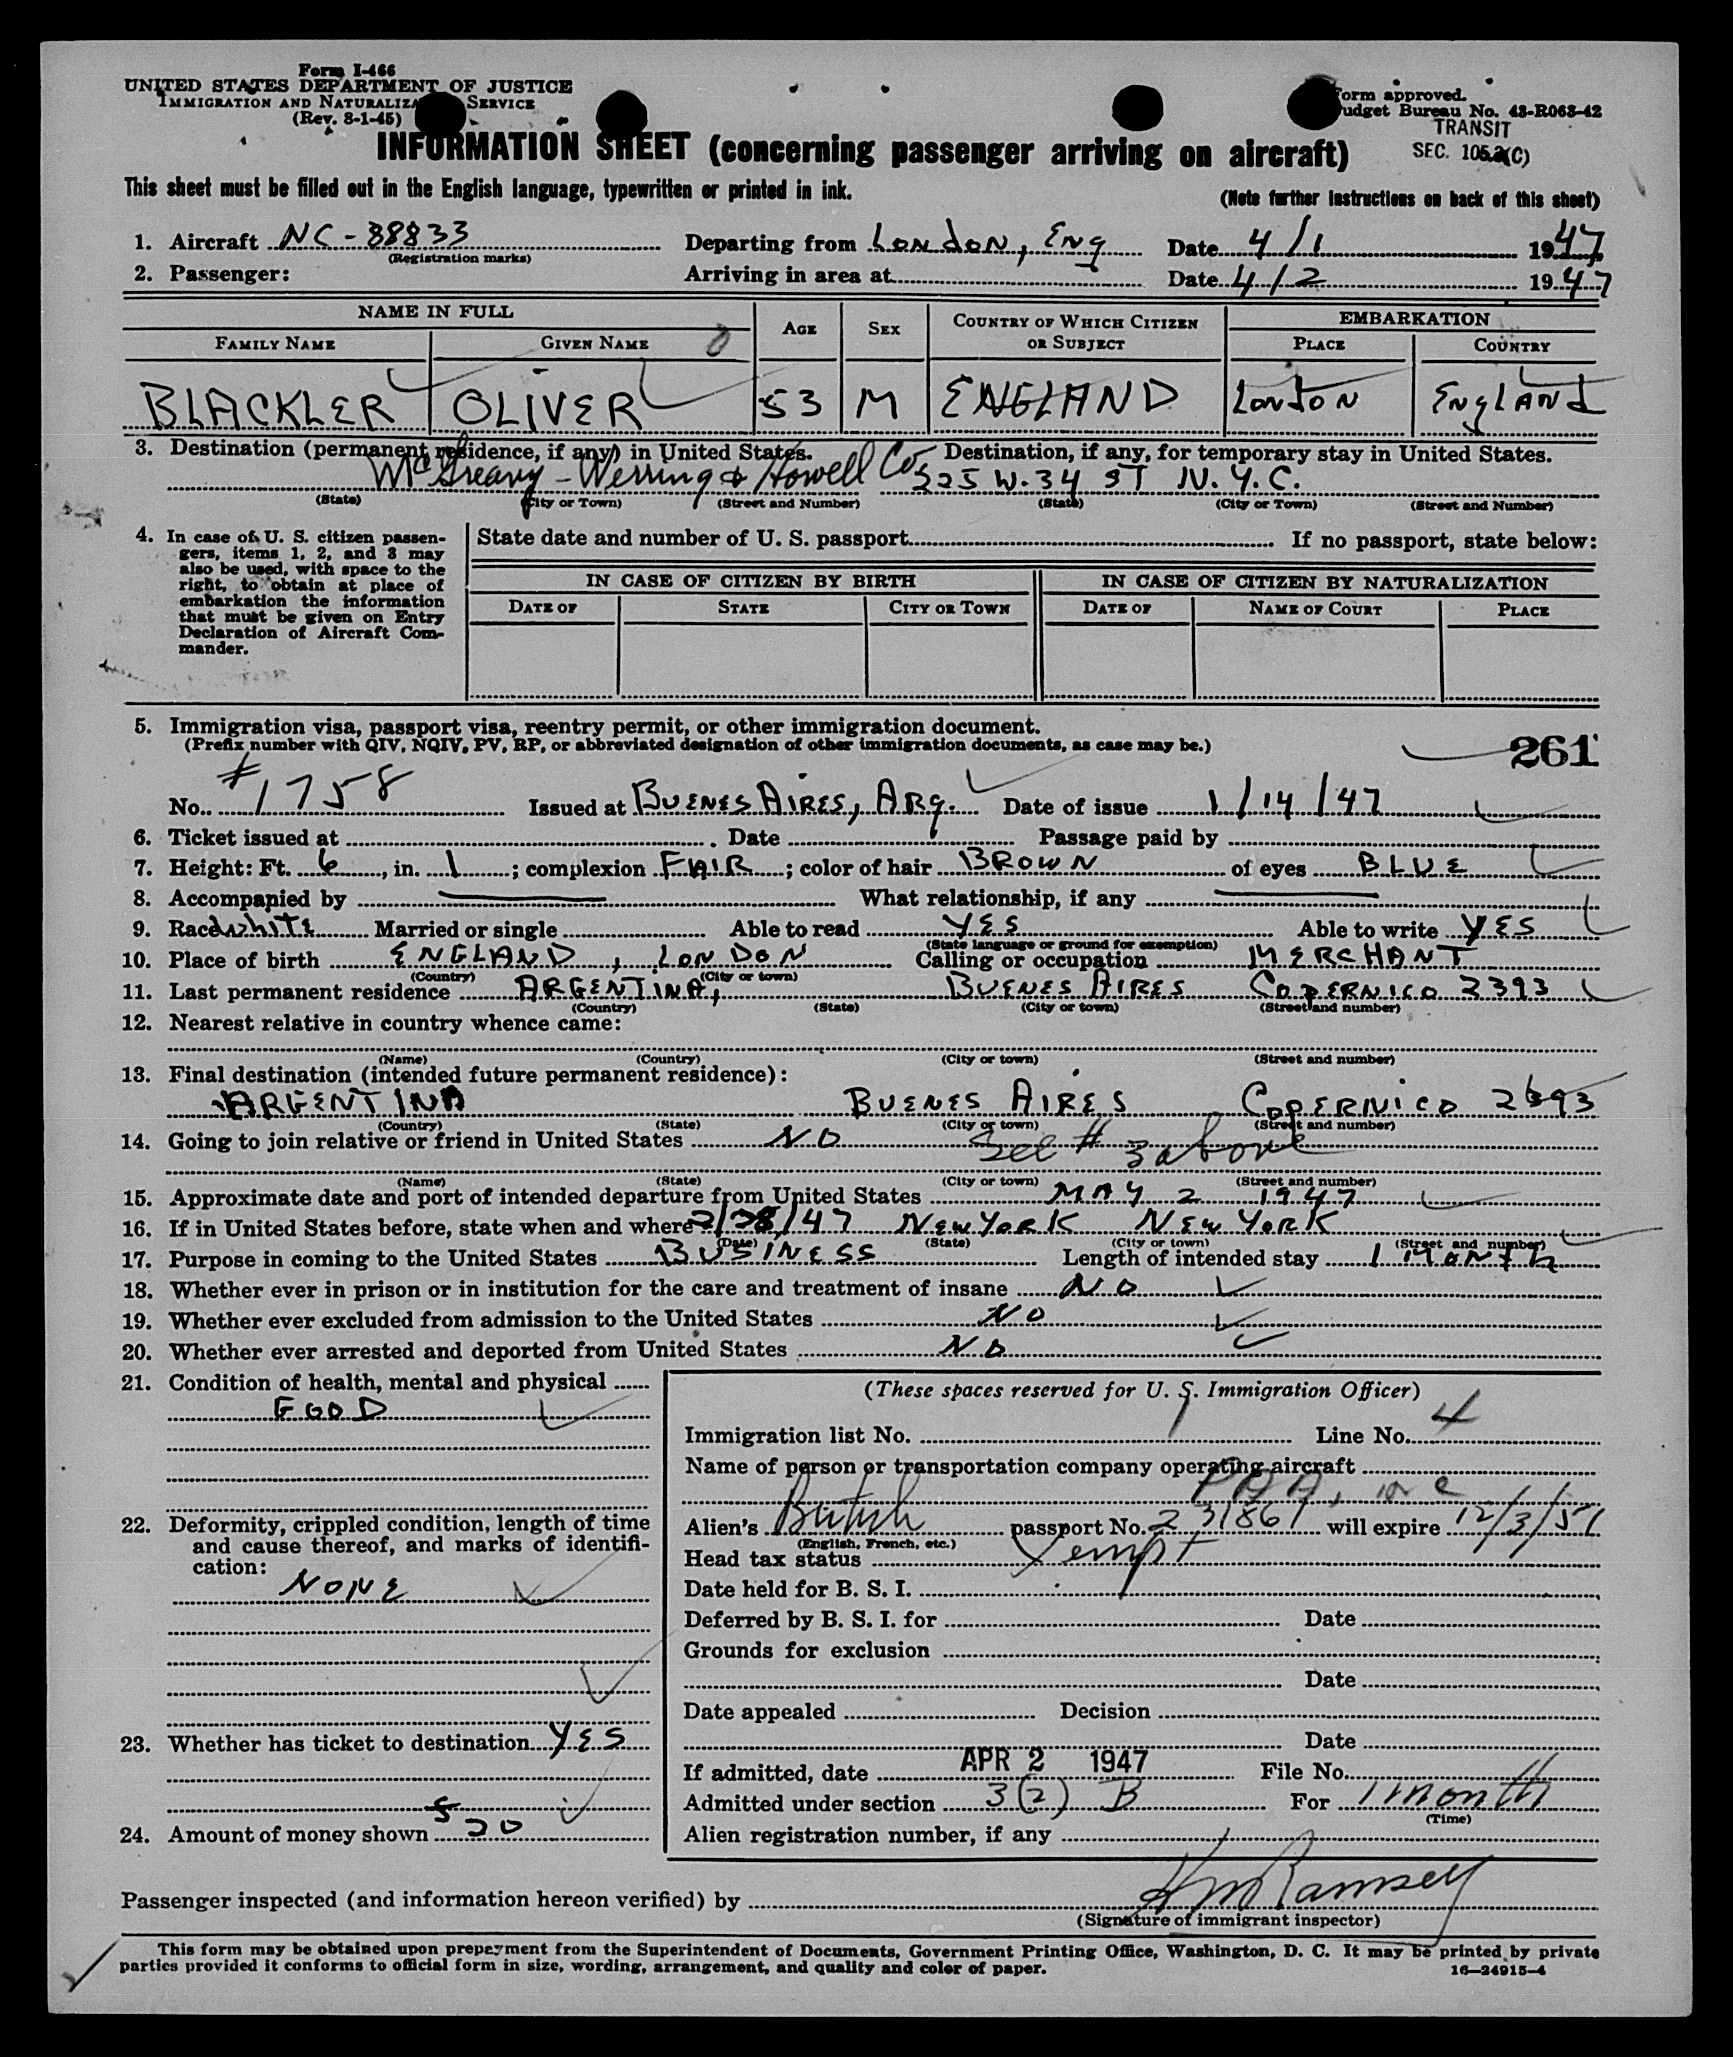 Form I-466
UNITED STATES DEPARTMENT OF JUSTICE
IMMIGRATION AND NATURALIZA SERVICE
(Rev. 8-1-45)
Form approved.
Budget Bureau No. 43-R063-42
TRANSIT
SEC. 105.2(C)
INFORMATION SHEET (concerning passenger arriving on aircraft)
This sheet must be filled out in the English language, typewritten or printed in ink.
(Note further instructions on back of this sheet)
1. Aircraft NC-88833 Departing from LONDON, ENG Date 4/1 1947
(Registration marks)
2. Passenger: Arriving in area at Date 4/2 1947
NAME IN FULL AGE SEX COUNTRY OF WHICH CITIZEN OR SUBJECT EMBARKATION
FAMILY NAME GIVEN NAME PLACE COUNTRY
BLACKLER OLIVER 53 M ENGLAND LONDON ENGLAND
3. Destination (permanent residence, if any) in United States. Destination, if any, for temporary stay in United States.
McGreavy - Werring & Howell Co 225 W. 34 ST N.Y.C.
(State) (City or Town) (Street and Number) (State) (City or Town) (Street and Number)
4. In case of U. S. citizen passengers, items 1, 2, and 3 may also be used, with space to the right, to obtain at place of embarkation the information that must be given on Entry Declaration of Aircraft Commander.
State date and number of U. S. passport If no passport, state below:
IN CASE OF CITIZEN BY BIRTH IN CASE OF CITIZEN BY NATURALIZATION
DATE OF STATE CITY OR TOWN DATE OF NAME OF COURT PLACE
5. Immigration visa, passport visa, reentry permit, or other immigration document.
(Prefix number with QIV, NQIV, PV, RP, or abbreviated designation of other immigration documents, as case may be.)
261
No. #1758 Issued at BUENES AIRES, ARg. Date of issue 1/14/47
6. Ticket issued at Date Passage paid by
7. Height: Ft. 6, in. 1; complexion FAIR; color of hair BROWN of eyes BLUE
8. Accompanied by What relationship, if any
9. Race WHITE Married or single Able to read YES Able to write YES
(State language or ground for exemption)
10. Place of birth ENGLAND, LONDON Calling or occupation MERCHANT
(Country) (City or town)
11. Last permanent residence ARGENTINA, BUENES AIRES COPERNICO 2393
(Country) (State) (City or town) (Street and number)
12. Nearest relative in country whence came:
(Name) (Country) (City or town) (Street and number)
13. Final destination (intended future permanent residence):
ARGENTINA BUENES AIRES COPERNICO 2393
(Country) (State) (City or town) (Street and number)
14. Going to join relative or friend in United States NO See # 3 above
(Name) (State) (City or town) (Street and number)
15. Approximate date and port of intended departure from United States MAY 2 1947
16. If in United States before, state when and where 2/28/47 NEW YORK NEW YORK
(Date) (State) (City or town) (Street and number)
17. Purpose in coming to the United States BUSINESS Length of intended stay 1 MONTH
18. Whether ever in prison or in institution for the care and treatment of insane NO
19. Whether ever excluded from admission to the United States NO
20. Whether ever arrested and deported from United States NO
21. Condition of health, mental and physical
GOOD
22. Deformity, crippled condition, length of time and cause thereof, and marks of identification:
NONE
23. Whether has ticket to destination YES
24. Amount of money shown $20
(These spaces reserved for U. S. Immigration Officer)
Immigration list No. 1 Line No. 4
Name of person or transportation company operating aircraft
PAA, inc
Alien's British passport No. 231861 will expire 12/3/51
(English, French, etc.)
Head tax status Xempt
Date held for B. S. I.
Deferred by B. S. I. for Date
Grounds for exclusion
Date
Date appealed Decision
Date
If admitted, date APR 2 1947 File No.
Admitted under section 3(2) B For 1 month
(Time)
Alien registration number, if any
Passenger inspected (and information hereon verified) by HM Ramsey
(Signature of immigrant inspector)
This form may be obtained upon prepayment from the Superintendent of Documents, Government Printing Office, Washington, D. C. It may be printed by private
parties provided it conforms to official form in size, wording, arrangement, and quality and color of paper.
16—24915-4